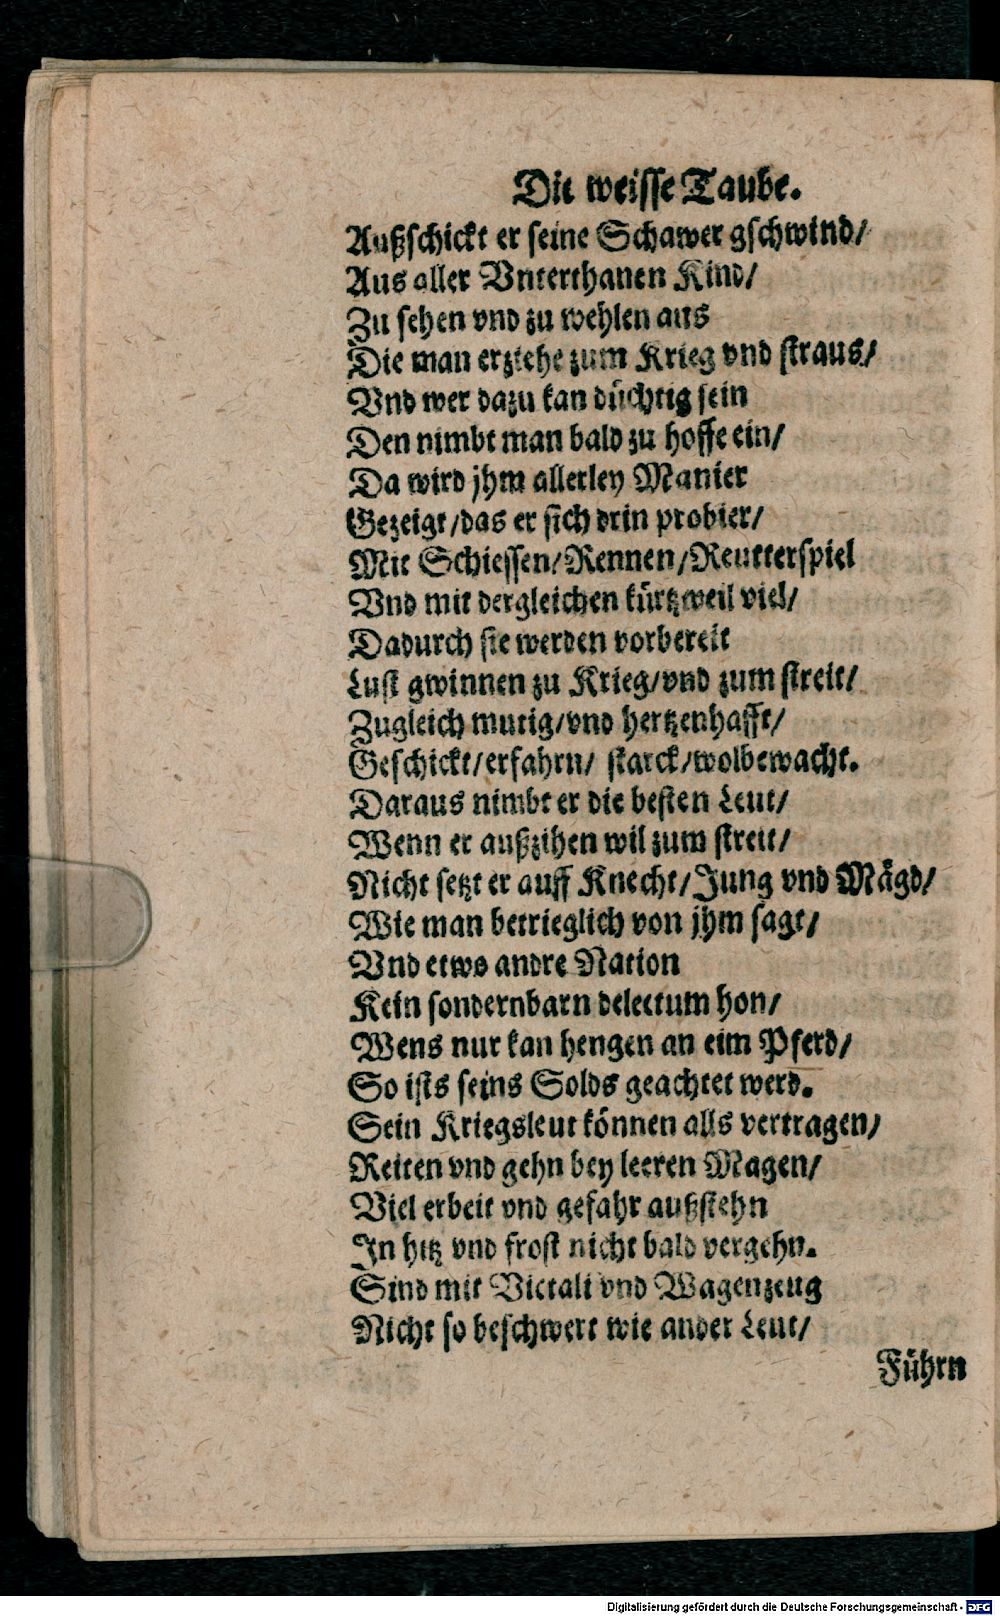 Die weisse Taube.
Außschickt er seine Schawer gschwind/
Aus aller Vnterthanen Kind/
Zu sehen vnd zu wehlen aus
Die man erziehe zum Krieg vnd straus/
Vnd wer dazu kan düchtig sein
Den nimbt man bald zu hoffe ein/
Da wird jhm allerley Manier
Gezeigt/das er sich drin probier/
Mit Schiessen/Rennen/Reutterspiel
Vnd mit dergleichen kürtzweil viel/
Dadurch sie werden vorbereit
Lust gwinnen zu Krieg/vnd zum streit/
Zugleich mutig/vnd hertzenhafft/
Geschickt/erfahrn/ starck/wolbewacht.
Daraus nimbt er die besten Leut/
Wenn er außzihen wil zum streit/
Nicht setzt er auff Knecht/Jung vnd Mägd/
Wie man betrieglich von jhm sagt/
Vnd etwo andre Nation
Kein sondernbarn delectum hon/
Wens nur kan hengen an eim Pferd/
So ists seins Solds geachtet werd.
Sein Kriegsleut können alls vertragen/
Reiten vnd gehn bey leeren Magen/
Viel erbeit vnd gefahr außstehn
In hitz vnd frost nicht bald vergehn.
Sind mit Victali vnd Wagenzeug
Nicht so beschwert wie ander Leut/
Führn
Digitalisierung gefördert durch die Deutsche Forschungsgemeinschaft - DFG